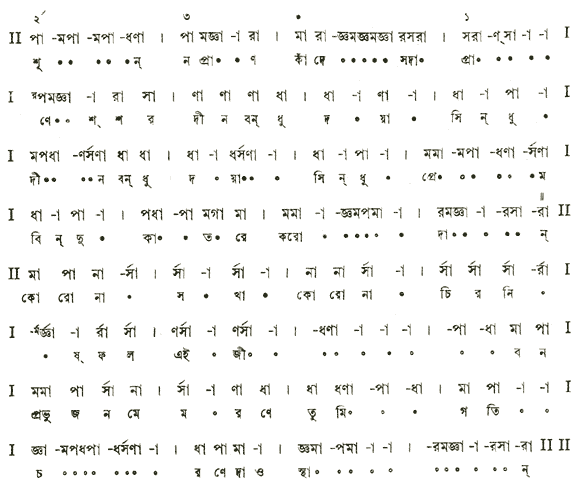 ২′ ৩ • ১
II পা -মপা -মপা -ধণা । পা মজ্ঞা -া রা । মা রা -জ্ঞমজ্ঞমজ্ঞা রসরা । সরা -ণ্সা -া -া I
শূ • • • • ন্ ন প্রা • • ণ কাঁ দে • • • • • সদা • প্রা • • • •
I রপমজ্ঞা -া রা সা । ণা ণা ণা ধা । ধা -া ণা -া । ধা -া পা -া I
ণে • • শ্ শ র দী ন ব ন্ ধু দ • য়া • সি ন্ ধু •
I মপধা -ণর্সণা ধা ধা । ধা -া ধর্সণা -া । ধা -া পা -া । মমা -মপা -ধণা -র্সণা I
দী • • • • ন ব ন্ ধু দ • য়া • • • সি ন্ ধু • প্রে • • • • • • ম
I ধা -া পা -া । পধা -পা মগা মা । মমা -া -জ্ঞমপমা -া । রমজ্ঞা -া -রসা -রা II
বি ন্ দু • কা • • ত • রে করো • • • • • • দা • • • • • ন্
II মা পা না -র্সা । র্সা -া র্সা -া । না না র্সা -া । র্সা র্সা র্সা -র্রা I
কো রো না • স • খা • কো রো না • চি র নি •
I -র্মর্জ্ঞা -া র্রা র্সা । ণর্সা -া ণর্সা -া । -ধণা -া -া -া । -পা -ধা মা পা I
• ষ্ ফ ল এই • জী • • • • • • • • ব ন
I মমা পা র্সা না । র্সা -া ণা ধা । ধা ধণা -পা -ধা । মা পা -া -া I
প্রভু জ ন মে ম • র ণে তু মি • • • গ তি • •
I জ্ঞা -মপধপা -ধর্সণা -া । ধা পা মা -া । জ্ঞমা -পমা -া -া । -রমজ্ঞা -া -রসা -রা II II
চ • • • • • • • • র ণে দাও স্থা • • • • • • • • • • • ন্